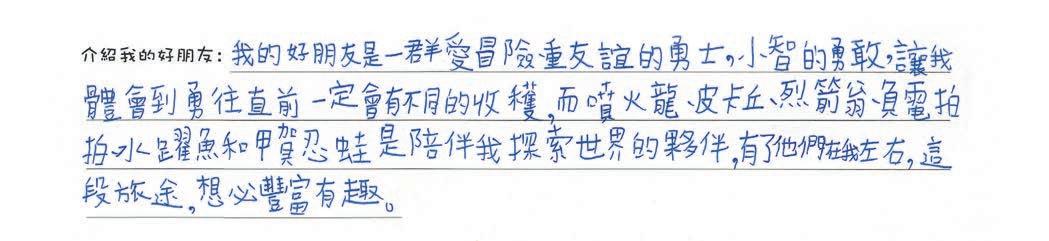 介紹我的好朋友：我的好朋友是一群愛冒險、重友誼的勇士。小智的勇敢，讓我
體會到勇往直前一定會有不同的收穫，而噴火龍、皮卡丘、烈箭翁、負電拍
拍、水躍魚和甲賀忍蛙是陪伴我探索世界的夥伴，有了他們在我左右，這
段旅途，想必豐富有趣。